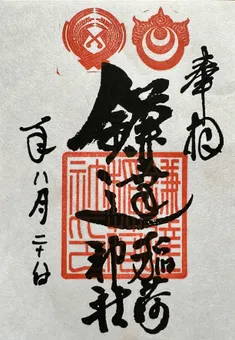 奉拝
鎌達稲荷神社
年八月二十日